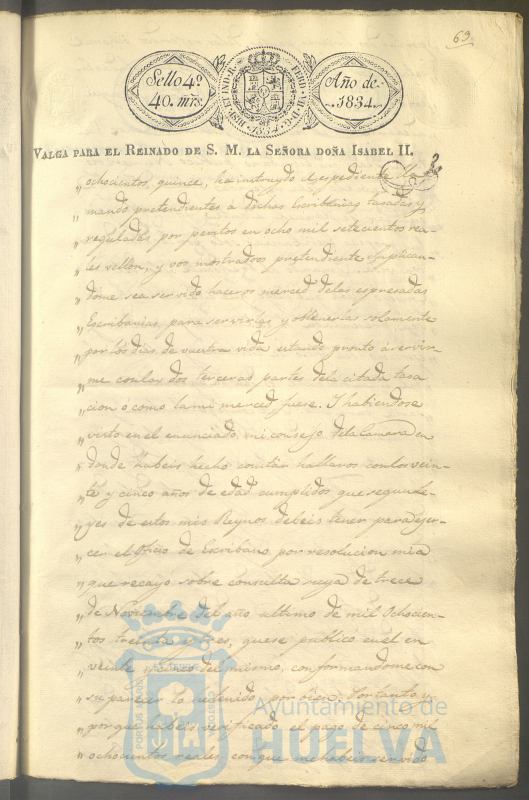 69
Sello 4º
40. mrs.
HISP. ET IND. R.
FERD. VII. D. G.
1834
Año de
1834.
VALGA PARA EL REINADO DE S. M. LA SEÑORA DOÑA ISABEL II.
" ochocientos, quince, ha instruydo espediente lla
" mando pretendientes a dichas Escribanias tasadas y
" reguladas, por peritos en ocho mil setecientos rea-
" les vellon, y vos mostradoos pretendiente suplican-
" dome sea servido haceros merced de las espresadas
" Escribanias, para servirlas y obtenerlas solamente
" por los dias de vuestra vida estando pronto á servir-
" me con las dos terceras partes de la citada tasa
" cion ó como la mi merced fuese. Y habiendose
" visto en el enunciado, mi consejo de la Camara en
" donde habeis hecho constar hallaros con los vein-
" te y cinco años de edad cumplidos que segun le-
" yes de estos mis Reynos debeis tener para ejer-
" cer el Oficio de Escribano por resolucion mia
" que recayo sobre consulta suya de trece
" de Noviembre del año ultimo de mil Ochocien-
" tos treinta y tres, que se publico en el en
" veinte y cinco del mismo, conformandome con
" su parecer lo he tenido, por bien: Por tanto y
" porque habeis verificado el pago de cinco mil
" ochocientos reales con que me habeis servido
PORTUS MARIS
ET TERRE CUSTODIA
Ayuntamiento de
HUELVA